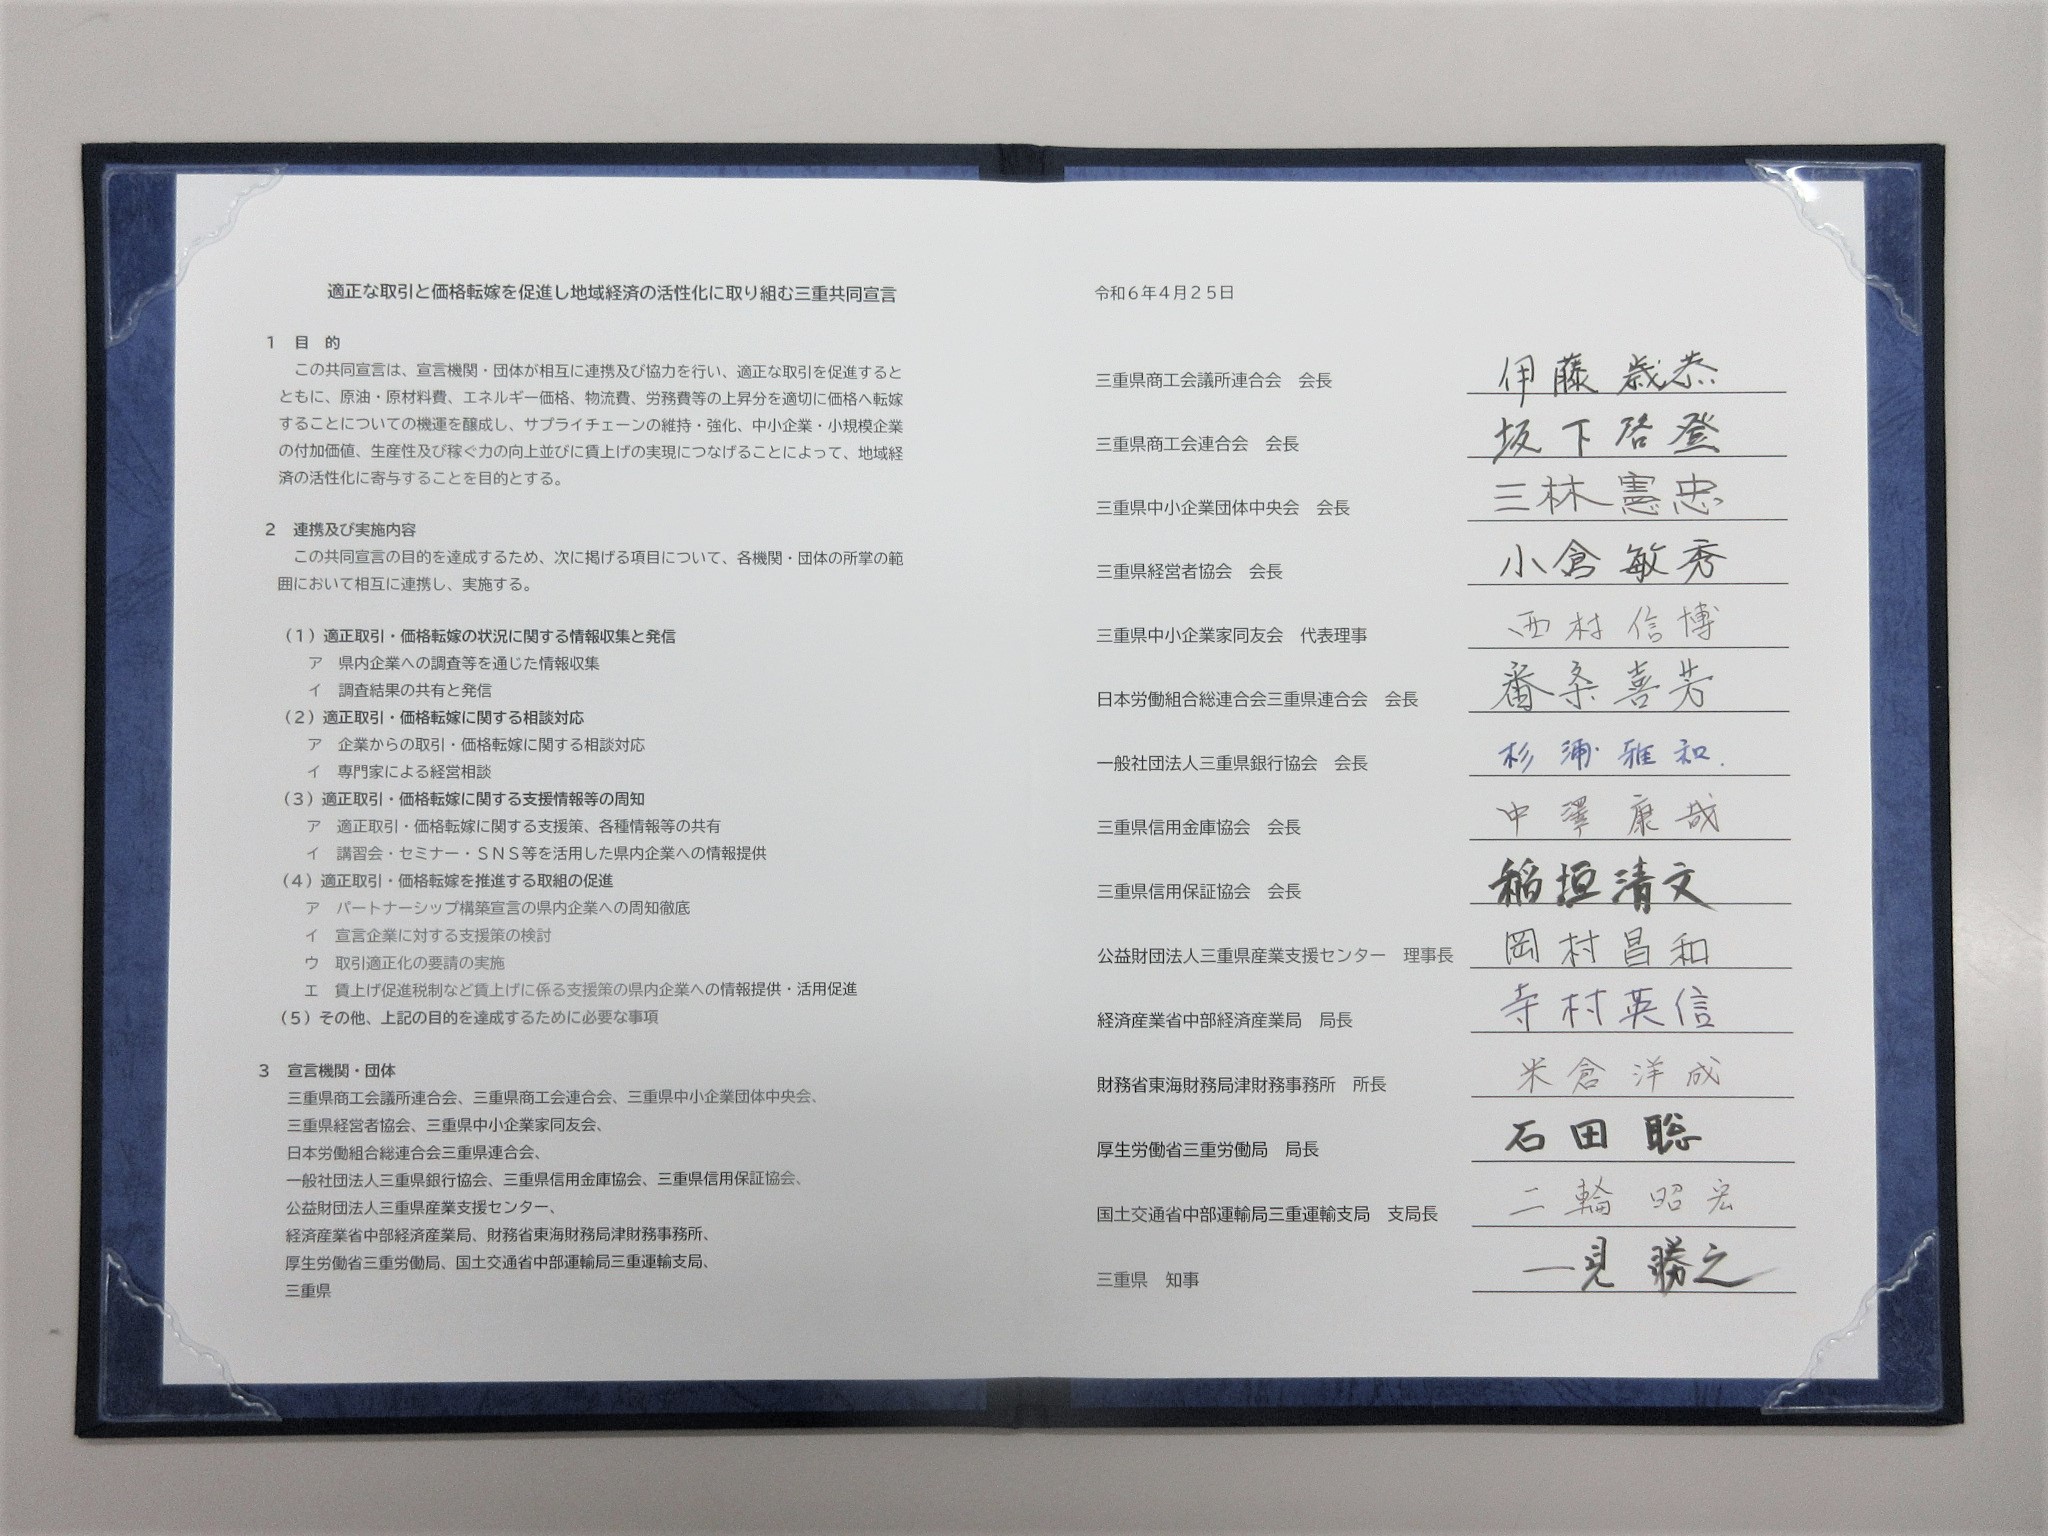 適正な取引と価格転嫁を促進し地域経済の活性化に取り組む三重共同宣言
1 目 的
この共同宣言は、宣言機関・団体が相互に連携及び協力を行い、適正な取引を促進すると
ともに、原油・原材料費、エネルギー価格、物流費、労務費等の上昇分を適切に価格へ転嫁
することについての機運を醸成し、サプライチェーンの維持・強化、中小企業・小規模企業
の付加価値、生産性及び稼ぐ力の向上並びに賃上げの実現につなげることによって、地域経
済の活性化に寄与することを目的とする。
2 連携及び実施内容
この共同宣言の目的を達成するため、次に掲げる項目について、各機関・団体の所掌の範
囲において相互に連携し、実施する。
(1)適正取引・価格転嫁の状況に関する情報収集と発信
ア 県内企業への調査等を通じた情報収集
イ 調査結果の共有と発信
(2)適正取引・価格転嫁に関する相談対応
ア 企業からの取引・価格転嫁に関する相談対応
イ 専門家による経営相談
(3)適正取引・価格転嫁に関する支援情報等の周知
ア 適正取引・価格転嫁に関する支援策、各種情報等の共有
イ 講習会・セミナー・SNS等を活用した県内企業への情報提供
(4)適正取引・価格転嫁を推進する取組の促進
ア パートナーシップ構築宣言の県内企業への周知徹底
イ 宣言企業に対する支援策の検討
ウ 取引適正化の要請の実施
エ 賃上げ促進税制など賃上げに係る支援策の県内企業への情報提供・活用促進
(5)その他、上記の目的を達成するために必要な事項
3 宣言機関・団体
三重県商工会議所連合会、三重県商工会連合会、三重県中小企業団体中央会、
三重県経営者協会、三重県中小企業家同友会、
日本労働組合総連合会三重県連合会、
一般社団法人三重県銀行協会、三重県信用金庫協会、三重県信用保証協会、
公益財団法人三重県産業支援センター、
経済産業省中部経済産業局、財務省東海財務局津財務事務所、
厚生労働省三重労働局、国土交通省中部運輸局三重運輸支局、
三重県
令和6年4月25日
三重県商工会議所連合会 会長 伊藤 歳恭
三重県商工会連合会 会長 坂下啓登
三重県中小企業団体中央会 会長 三林憲忠
三重県経営者協会 会長 小倉敏秀
三重県中小企業家同友会 代表理事 西村信博
日本労働組合総連合会三重県連合会 会長 番条喜芳
一般社団法人三重県銀行協会 会長 杉浦雅和.
三重県信用金庫協会 会長 中澤康哉
三重県信用保証協会 会長 稲垣清文
公益財団法人三重県産業支援センター 理事長 岡村昌和
経済産業省中部経済産業局 局長 寺村英信
財務省東海財務局津財務事務所 所長 米倉洋成
厚生労働省三重労働局 局長 石田 聡
国土交通省中部運輸局三重運輸支局 支局長 二輪 昭宏
三重県 知事 一見 勝之